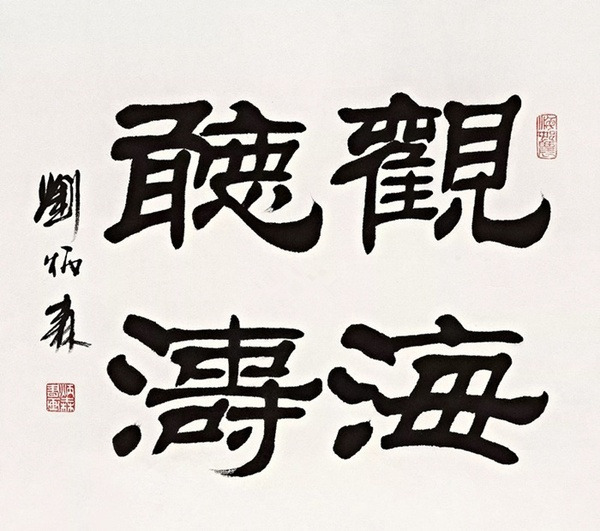 觀海
聽濤
劉炳森